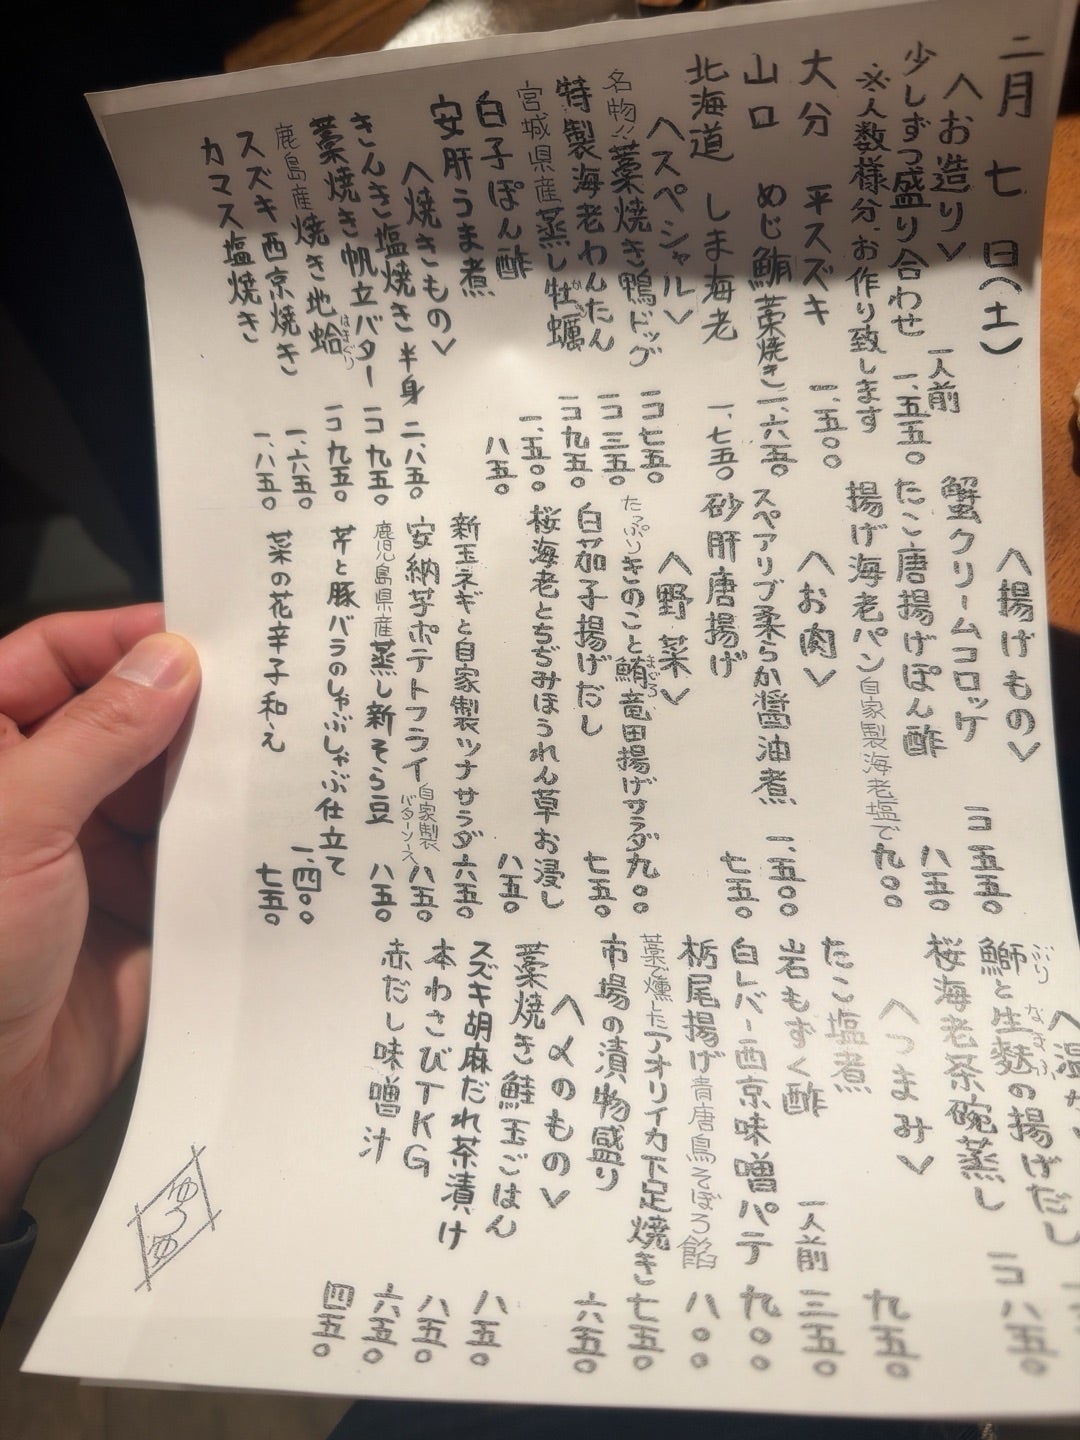 二月七日(土)
〈お造り〉
少しずつ盛り合わせ 一人前 一、五五〇
※人数様分、お作り致します
大分 平スズキ 一、五〇〇
山口 めじ鮪藁焼き 一、六五〇
北海道 しま海老 一、七五〇
〈スペシャル〉
名物!!藁焼き鴨ドッグ 一コ七五〇
特製海老わんたん 一コ三五〇
宮城県産蒸し牡蠣 一コ九五〇
白子ぽん酢 一、五〇〇
安肝うま煮 八五〇
〈焼きもの〉
きんき塩焼き半身 二、八五〇
藁焼き帆立バター 一コ九五〇
鹿島産焼き地蛤 はまぐり 一コ九五〇
スズキ西京焼き 一、六五〇
カマス塩焼き 一、八五〇
〈揚げもの〉
蟹クリームコロッケ 一コ五五〇
たこ唐揚げぽん酢 八五〇
揚げ海老パン自家製海老塩で 九〇〇
〈お肉〉
スペアリブ柔らか醤油煮 一、五〇〇
砂肝唐揚げ 七五〇
〈野菜〉
たっぷりきのこと鮪竜田揚げサラダ まぐろ 九〇〇
白茄子揚げだし 七五〇
桜海老とちぢみほうれん草お浸し 八五〇
新玉ネギと自家製ツナサラダ 六五〇
安納芋ポテトフライ 自家製バターソース 八五〇
鹿児島県産蒸し新そら豆 八五〇
芹と豚バラのしゃぶしゃぶ仕立て 一、四〇〇
菜の花辛子和え 七五〇
〈温か
鰤と生麩の揚げだし ぶり なまふ 一コ八五〇
桜海老茶碗蒸し 九五〇
〈つまみ〉
たこ塩煮
岩もずく酢 一人前 三五〇
白レバー西京味噌パテ 九〇〇
栃尾揚げ青唐鳥そぼろ餡 八〇〇
藁で燻したアオリイカ下足焼き 七五〇
市場の漬物盛り 六五〇
〈〆のもの〉
藁焼き鮭玉ごはん 八五〇
スズキ胡麻だれ茶漬け 八五〇
本わさびTKG 六五〇
赤だし味噌汁 四五〇
ゆるゆる